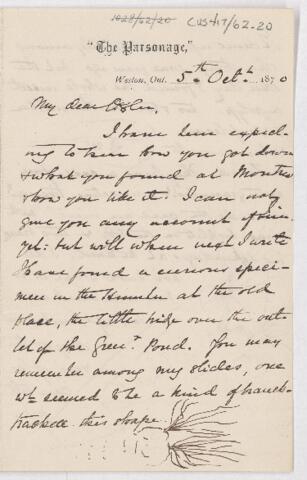 1028/62/20
CUS417/62.20
"The Parsonage,"
Weston, Ont. 5th Octr. 1870
My dear Osler,
I have been expect-
ing to hear how you got down
& what you found at Montreal
& how you like it. I can not
give you any account of
yet: but will when next I write
I have found a curious speci-
men in the Humber at the old
place, the little bridge over the out-
let of the Green Pond. You may
remember among my slides, one
wh seemed to be a kind of branch-
this shape